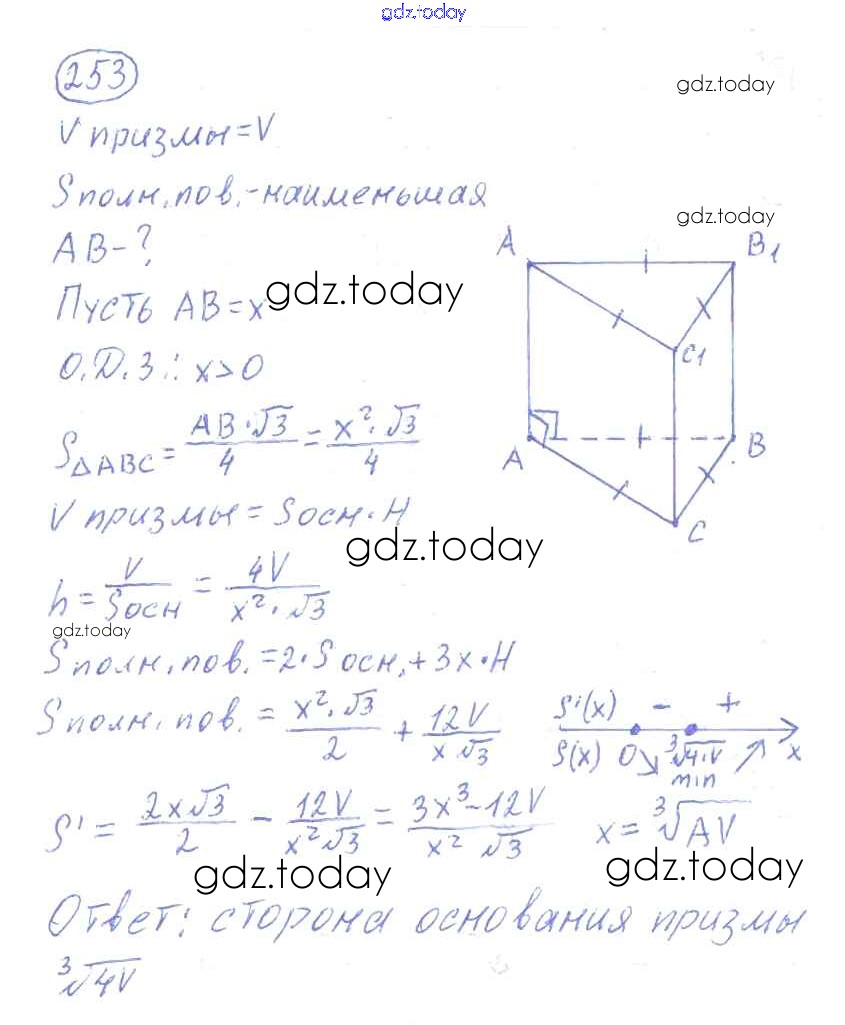 gdz.today
253
gdz.today
V призмы = V
S полн. пов. - наименьшая
gdz.today
AB - ?
Пусть AB = x
gdz.today
О.Д.З.: x > 0
S△ABC = AB·√3/4 = x²·√3/4
V призмы = Sосн·H
gdz.today
h = V/Sосн = 4V/x²·√3
gdz.today
S полн. пов. = 2·Sосн. + 3x·H
S полн. пов. = x²·√3/2 + 12V/x√3
S' = 2x√3/2 - 12V/x²√3 = 3x³-12V/x²√3
x = ∛AV
gdz.today
gdz.today
Ответ: сторона основания призмы
∛4V
gdz.today
A
B1
C1
A
B
C
S'(x) - +
S(x) 0 ↘ ∛4·V ↗ x
min